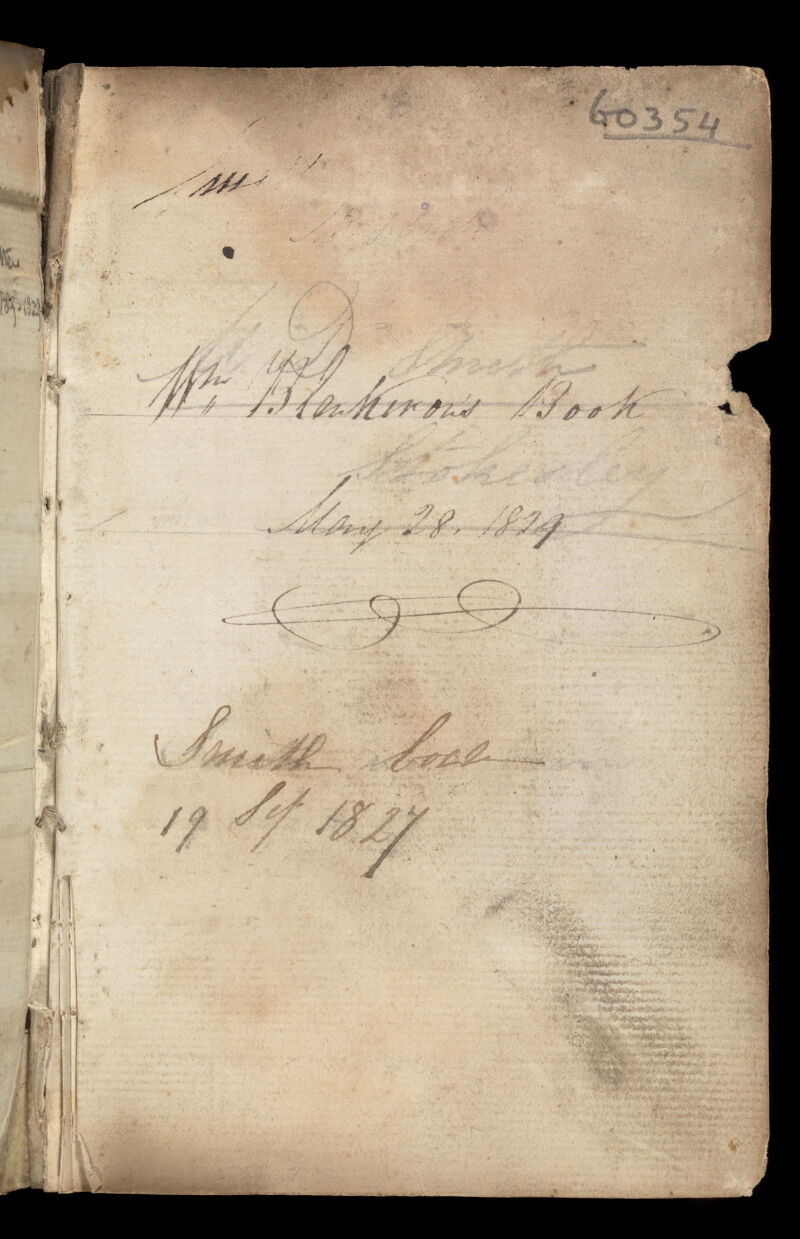 60354
Smith
Wm. Blenkiron's Book
Stokesley
May 28. 1829
Smith
19 Sep 1827